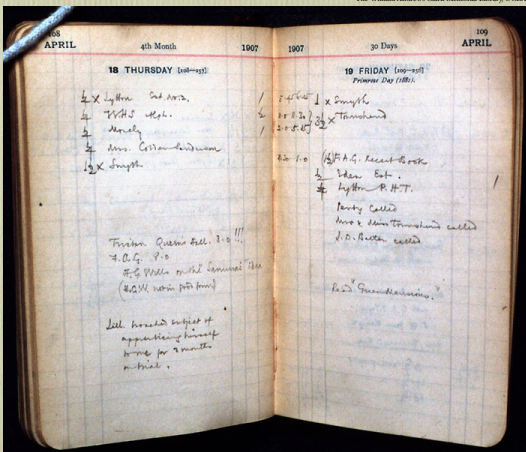 108
APRIL 4th Month 1907
18 THURSDAY [108—257]
½ × Lytton Est. No. 2. 1
½ WHS
½
½ Mrs. Cobden Sanderson
1½ × Smyth
Tristan Queens Hall. 3.0 !!!
F.A.G. 8.0
H.G. Wells on the "Samurai"
(H.G.W. not in good form)
Lell. broached subject of
apprenticing himself
to me for 3 months
on trial.
109
1907 30 Days APRIL
19 FRIDAY [109—256]
Primrose Day (1881).
1 × Smyth
3½ × Townshend
8.30 1.0 (1½) F.A.G. Recent Books
½ Eden Est. 1
Lytton P.H.T.
Penty called
Mrs & Miss Townshend called
J.D. called
Read